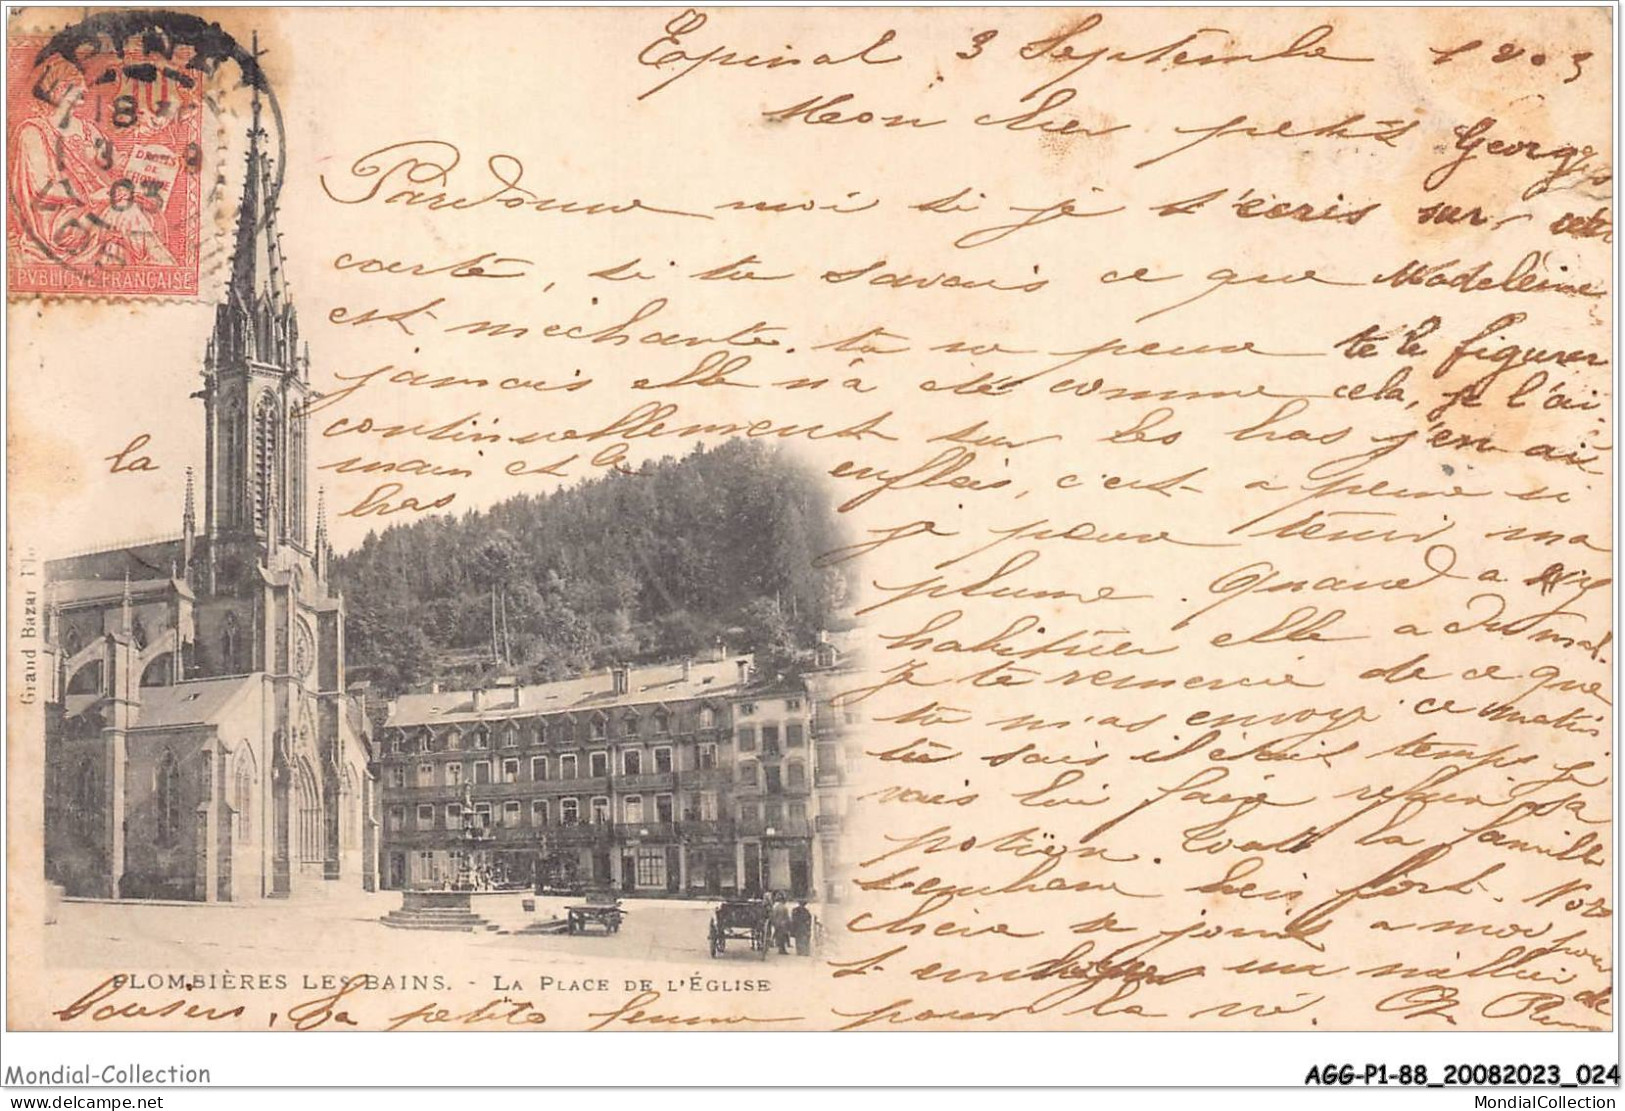 Epinal 3 Septembre 1903
Mon cher petit Georges
Pardonne moi si je t'écris sur cette
carte, si tu savais ce que Madeleine
est méchante. tu ne peux te le figurer
jamais elle n'a été comme cela, je l'ai
continuellement sur les bras j'en ai
la main et le enflés, c'est a peine si
bras
je peux tenir ma
plume. Quand a s'y
habituer elle a du mal.
Je te remercie de ce que
tu m'as envoyé ce matin
tu sais il était temps je
vais lui faire refaire sa
potion. Toute la famille
t'embrasse bien fort. Notre
chérie se joint a moi pour
t'embrasser un millier de
baisers, Ta petite femme pour la vie.
EPINAL
18
3 9
03
VOSGES
DROITS
DE
L'HOMME
10
REPVBLIQVE FRANÇAISE
Grand Bazar
PLOMBIÈRES LES BAINS. - LA PLACE DE L'ÉGLISE
Mondial-Collection
AGG-P1-88_20082023_024
delcampe.net
MondialCollection